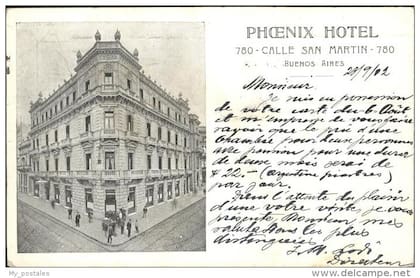 PHŒNIX HOTEL
780 - CALLE SAN MARTIN - 780
BUENOS AIRES
29/9/02
Monsieur
Je suis en possession
de votre carte du 6 Août
et m'empresse de vous faire
savoir que le prix d'une
Chambre pour deux personnes
avec pension pour une durée
de deux mois serai de
$ 22 - (
par jour.
Dans l'attente du plaisir
d'une votre visite, je vous
présente Monsieur mes
salutations les plus
distinguées
Directeur
delcampe.net